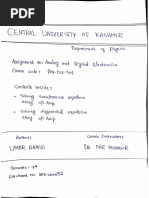 CENTRAL UNIVERSITY OF KASHMIR
Department of Physics
Assignment on: Analog and Digital Electronics
Course Code:
Contents Include:
Solving simultaneous equations
using Op-Amp
Solving differential equations
using Op-Amp
Author:
Course Instructor:
UMAR HAMID
Semester: 7th
Enrollment no: